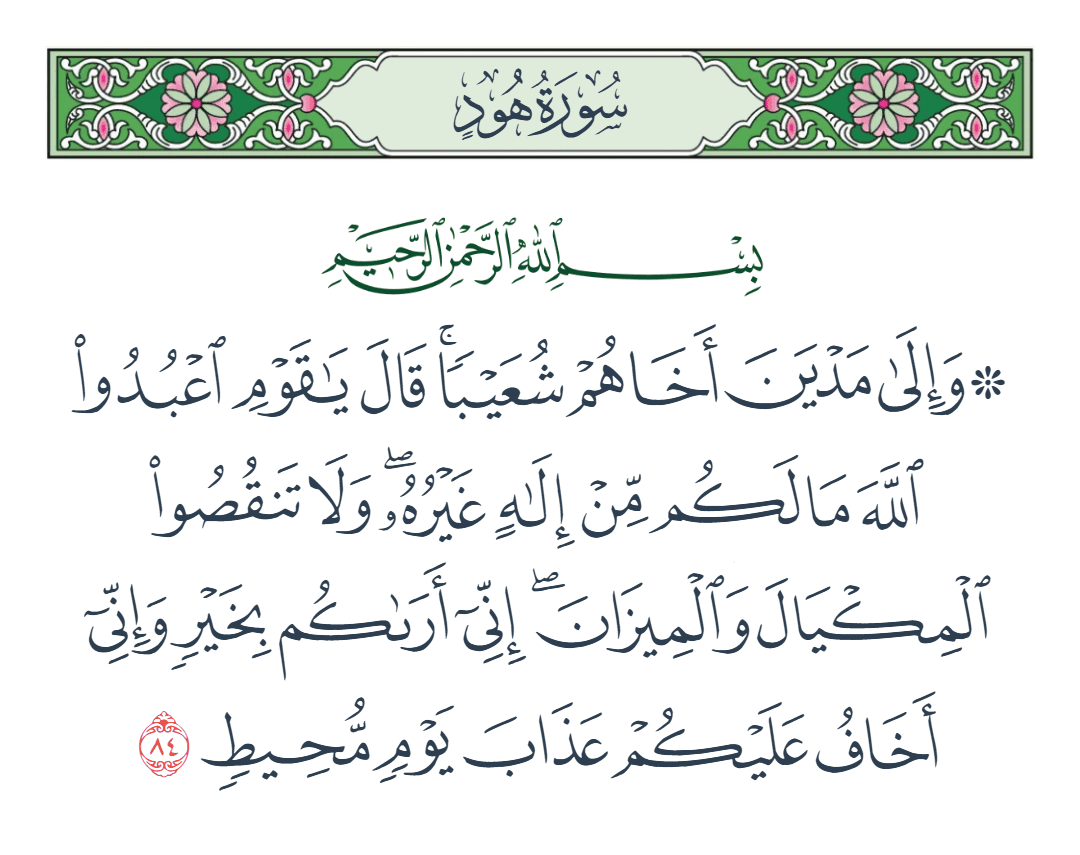 سُورَةُ هُودٍ
بِسْمِ ٱللَّهِ ٱلرَّحْمَٰنِ ٱلرَّحِيمِ
۞ وَإِلَىٰ مَدْيَنَ أَخَاهُمْ شُعَيْبًاۚ قَالَ يَـٰقَوْمِ ٱعْبُدُوا۟
ٱللَّهَ مَا لَكُم مِّنْ إِلَـٰهٍ غَيْرُهُۥۖ وَلَا تَنقُصُوا۟
ٱلْمِكْيَالَ وَٱلْمِيزَانَۖ إِنِّىٓ أَرَىٰكُم بِخَيْرٍ وَإِنِّىٓ
أَخَافُ عَلَيْكُمْ عَذَابَ يَوْمٍ مُّحِيطٍ ٨٤